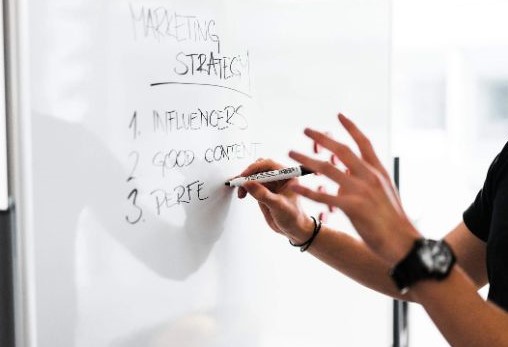 MARKETING
STRATEGY
1. INFLUENCERS
2 GOOD CONTENT
3. PERFE